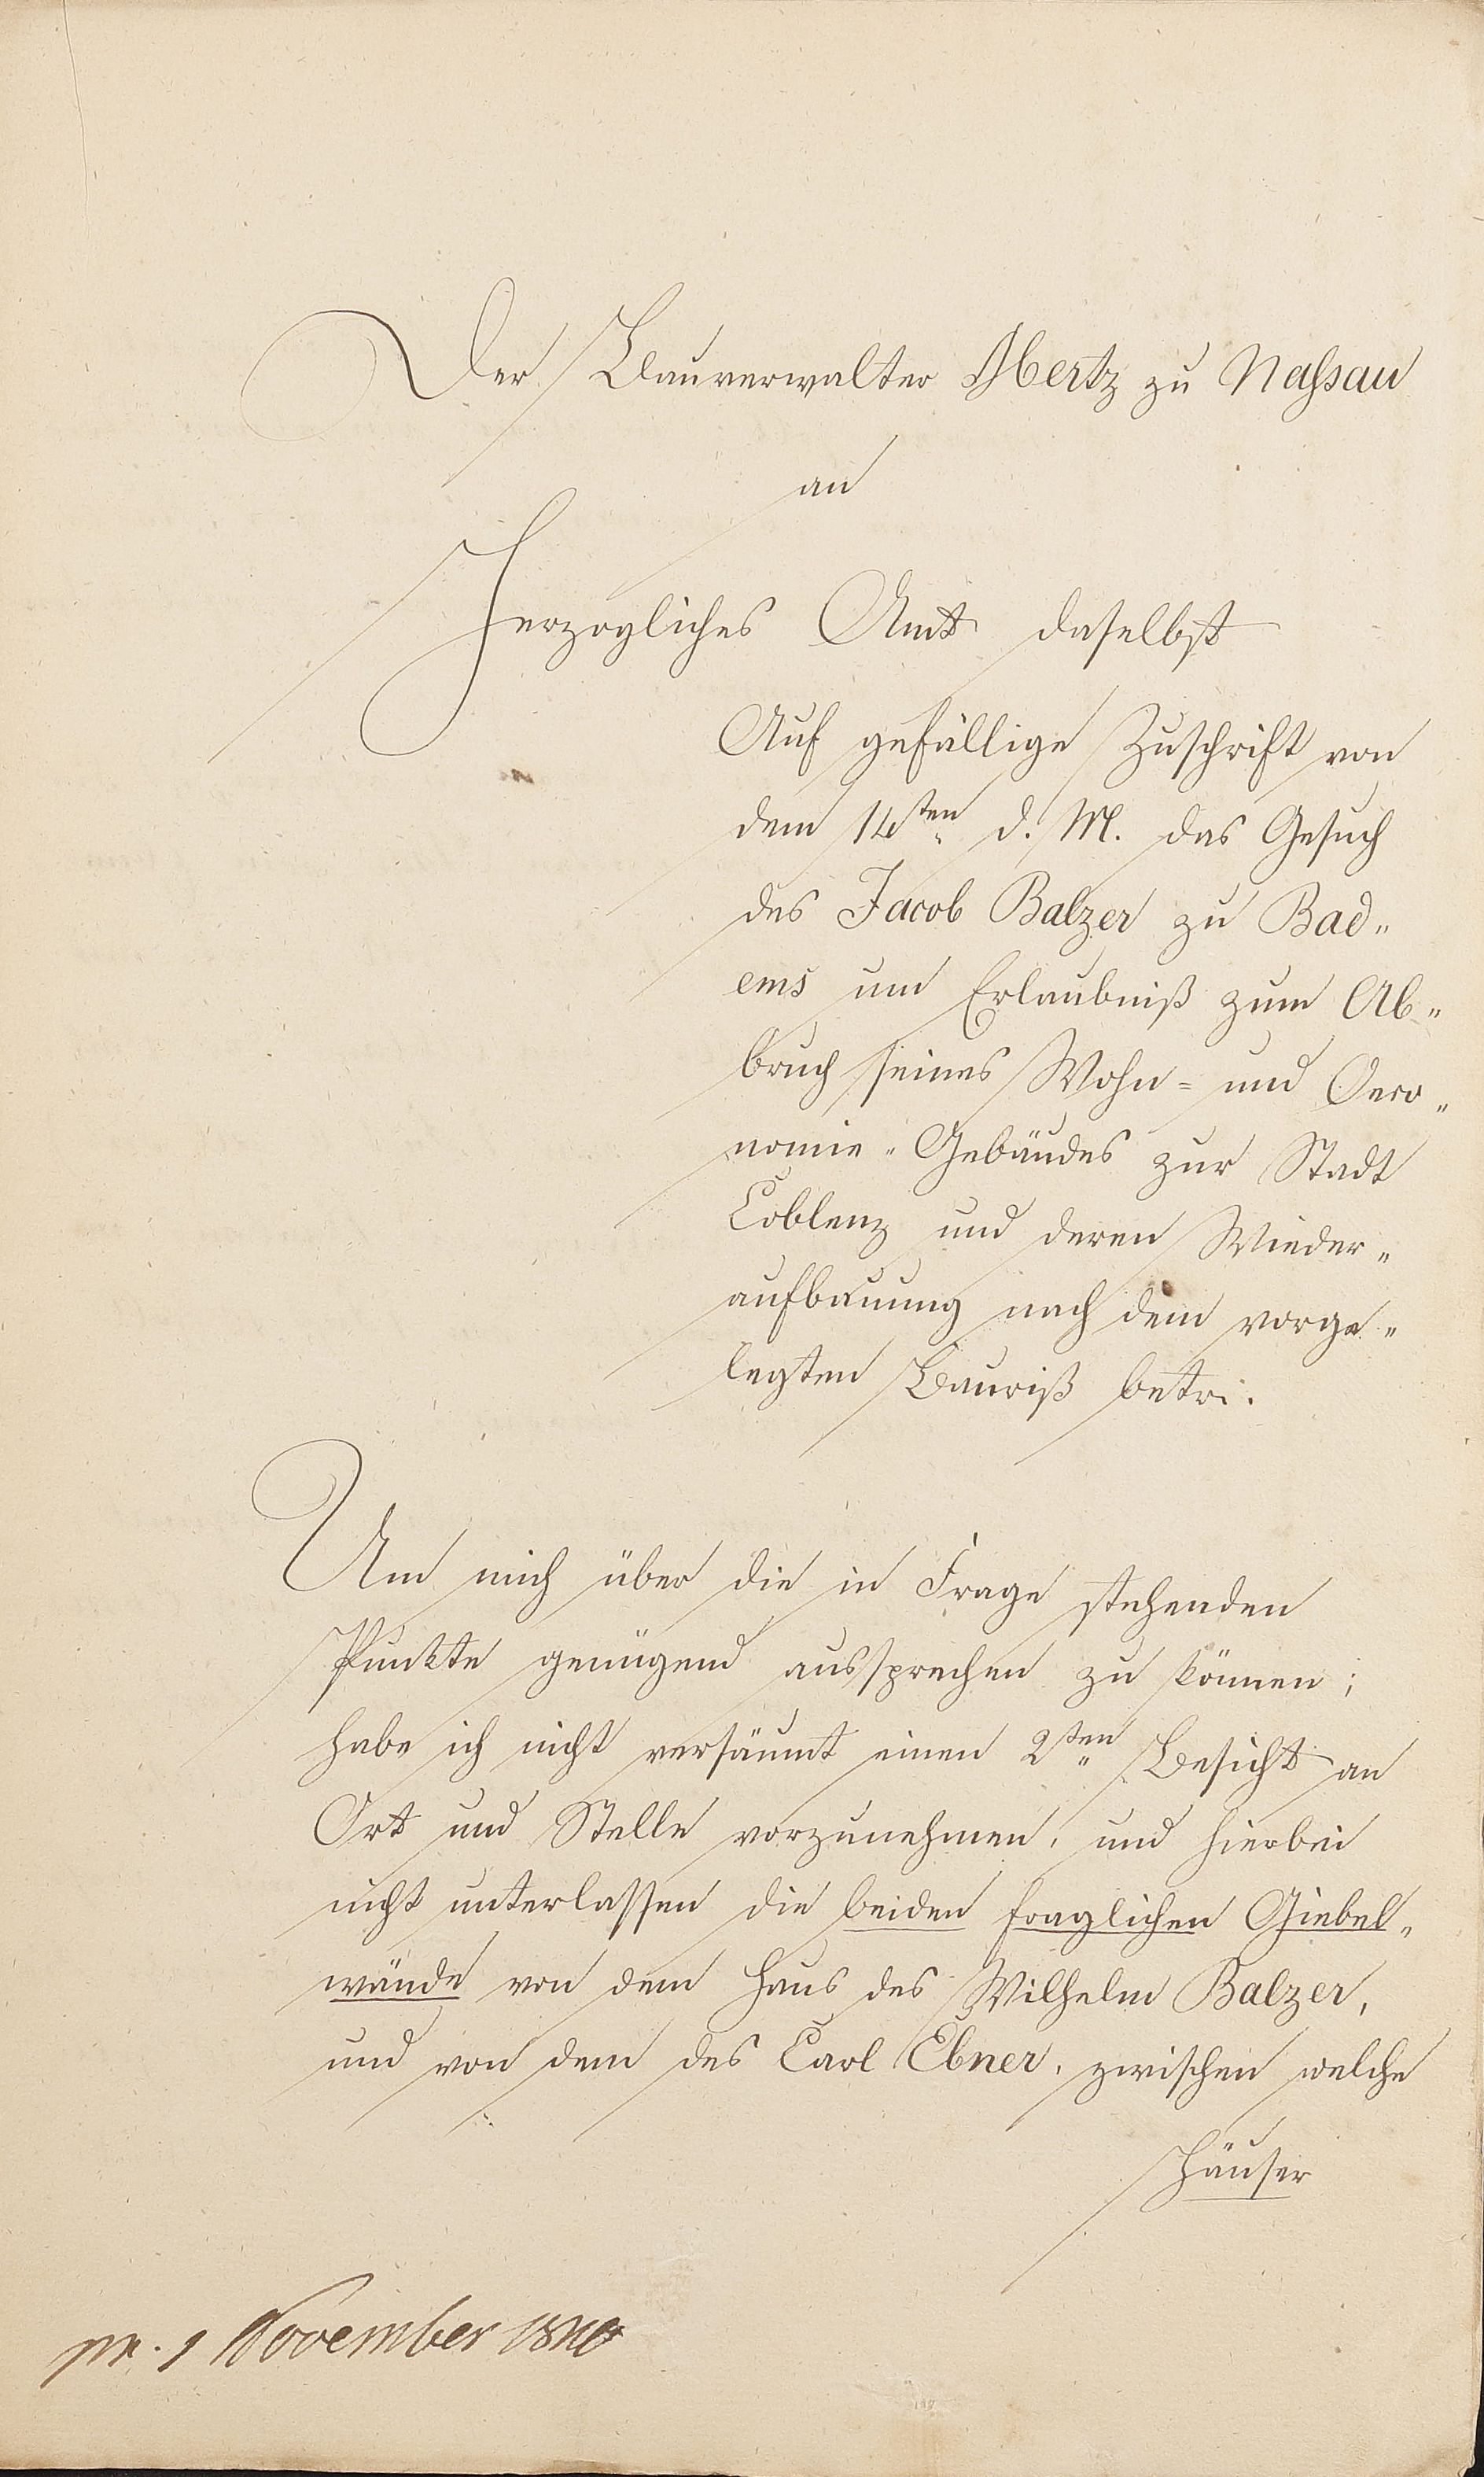 Der Bauverwalter Mertz zu Nassau
an
Herzogliches Amt daselbst
Auf gefällige Zuschrift von
dem 14ten d. M. das Gesuch
des Jacob Balzer zu Bad„
ems um Erlaubniß zum Ab„
bruch seines Wohn= und Oeco„
nomie„Gebäudes zur Stadt
Coblenz und deren Wieder„
aufbauung nach dem vorge„
legten Bauriß betr.
Um mich über die in Frage stehenden
Punkte genügend aussprechen zu können;
habe ich nicht versäumt einen 2ten Besicht an
Ort und Stelle vorzunehmen, und hierbei
nicht unterlassen die beiden fraglichen Giebel„
wände von dem Haus des Wilhelm Balzer,
und von dem des Carl Ebner, zwischen welche
Häuser
pr. 1 November